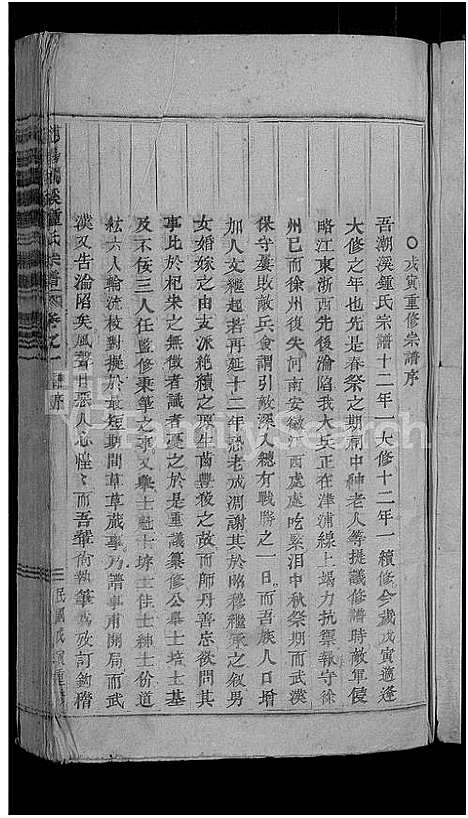 ○戊寅重修宗譜序
吾潮溪鍾氏宗譜十二年一大修十二年一續修今歲戊寅適逢
大修之年也先是春祭之期祠中紳老人等提議修譜時敵軍侵
略江東浙西先後淪陷我大兵正在津浦線上竭力抗禦報守徐
州已而徐州復失河南安徽江西處處吃緊泪中秋祭期而武漢
保守屢敗敵兵僉謂引敵深入總有戰勝之一日而吾族人口增
加人文繼起若再延十二年恐老成凋謝其於昭穆繼承之叙男
女婚嫁之由支派絕續之原生齒豐梭之故而師丹善忘欲問其
事比於杞宋之無徵者識者憂之於是重議纂修公舉士培士基
及不佞三人任監修秉筆之事又舉士魁士坊士佳士紳士份道
紘六人輪流校對擬於最短期間草草蕆事乃譜事甫開局而武
漢又告淪陷矣風聲日惡人心惶〻而吾輩尚執筆
攷訂鈎稽
溪鍾氏宗譜
卷之一
譜序
民國戊寅重修
FamilySearch